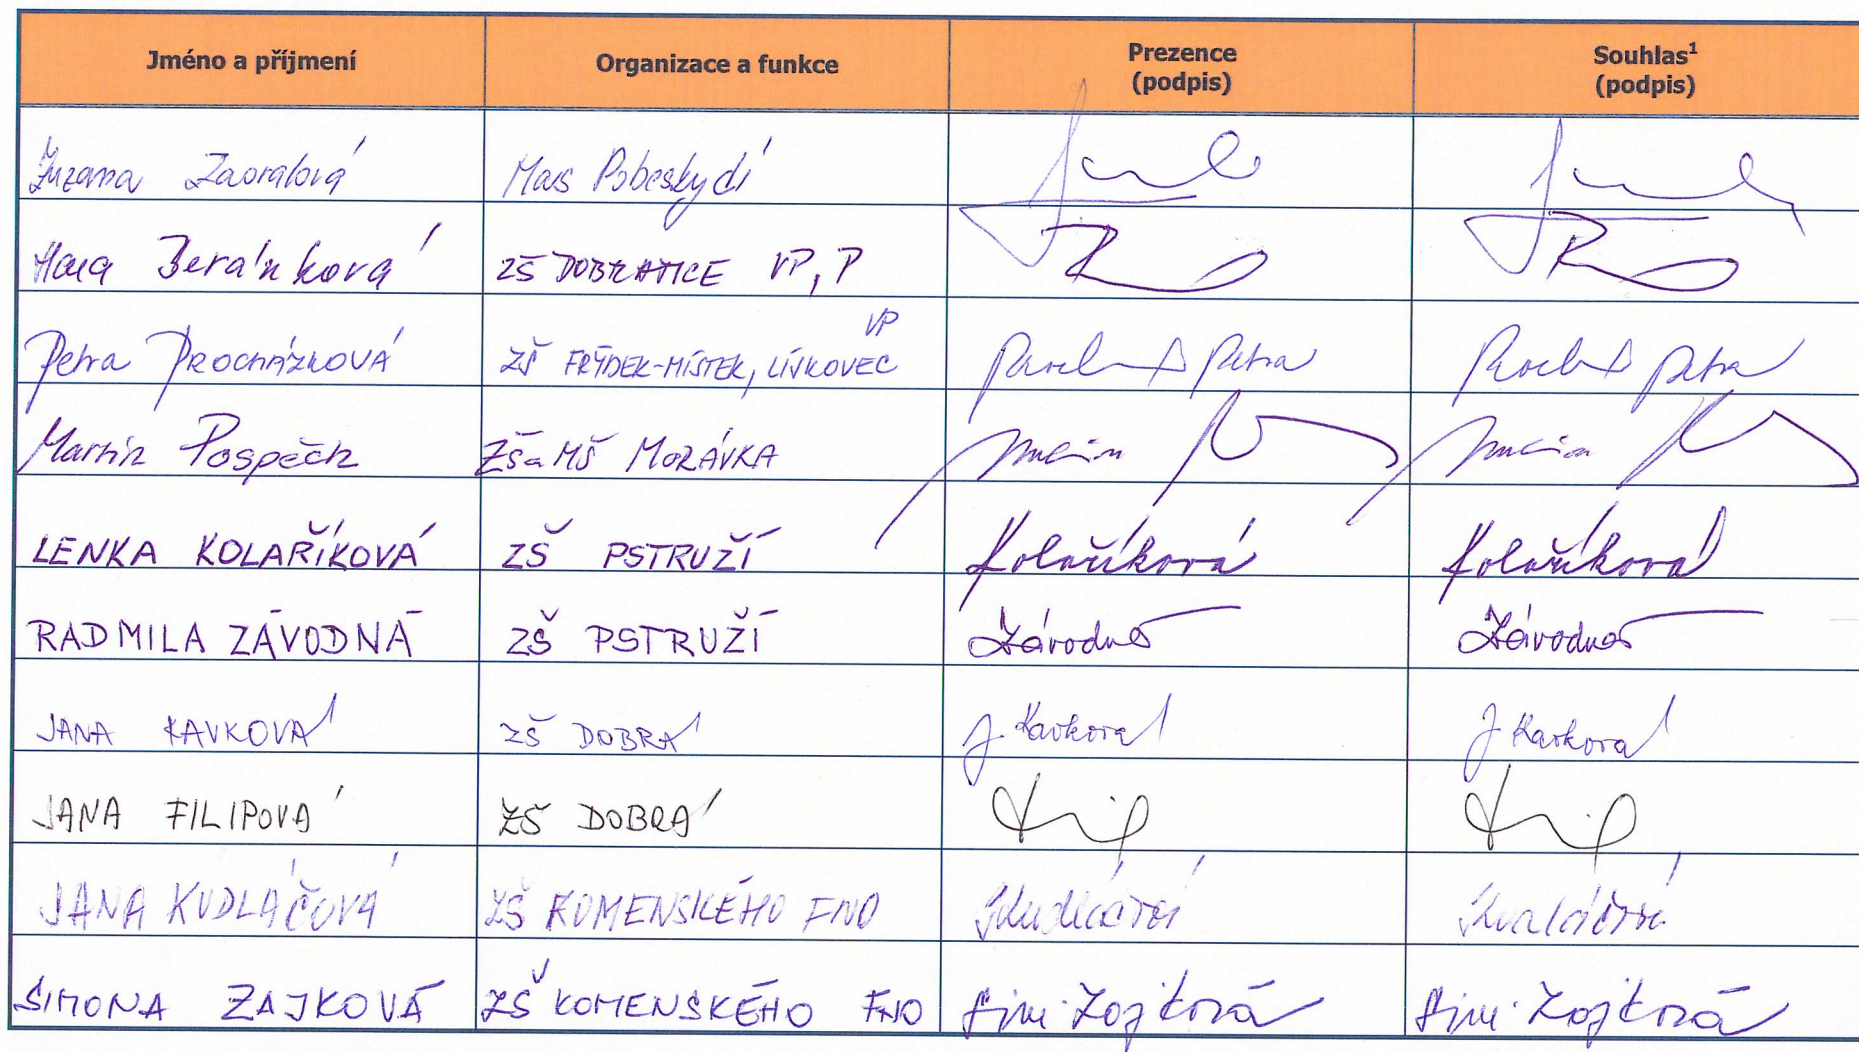 Jméno a příjmení Organizace a funkce Prezence (podpis) Souhlas¹ (podpis)
Zuzana Zaoralová Mas Pobeskydí
Hana Beránková ZŠ DOBRATICE VP, P
VP
Petra PROCHÁZKOVÁ ZŠ FRÝDEK-MÍSTEK, LÍSKOVEC Petra Petra
Martin Pospěch ZŠ a MŠ MORÁVKA
LENKA KOLAŘÍKOVÁ ZŠ PSTRUŽÍ Kolaříková Kolaříková
RADMILA ZÁVODNÁ ZŠ PSTRUŽÍ Závodná Závodná
JANA KAVKOVÁ ZŠ DOBRÁ J. Kavková J Kavková
JANA FILIPOVÁ ZŠ DOBRÁ
JANA KUDLÁČOVÁ ZŠ KOMENSKÉHO FNO
SIMONA ZAJKOVÁ ZŠ KOMENSKÉHO FNO Zajková Zajková